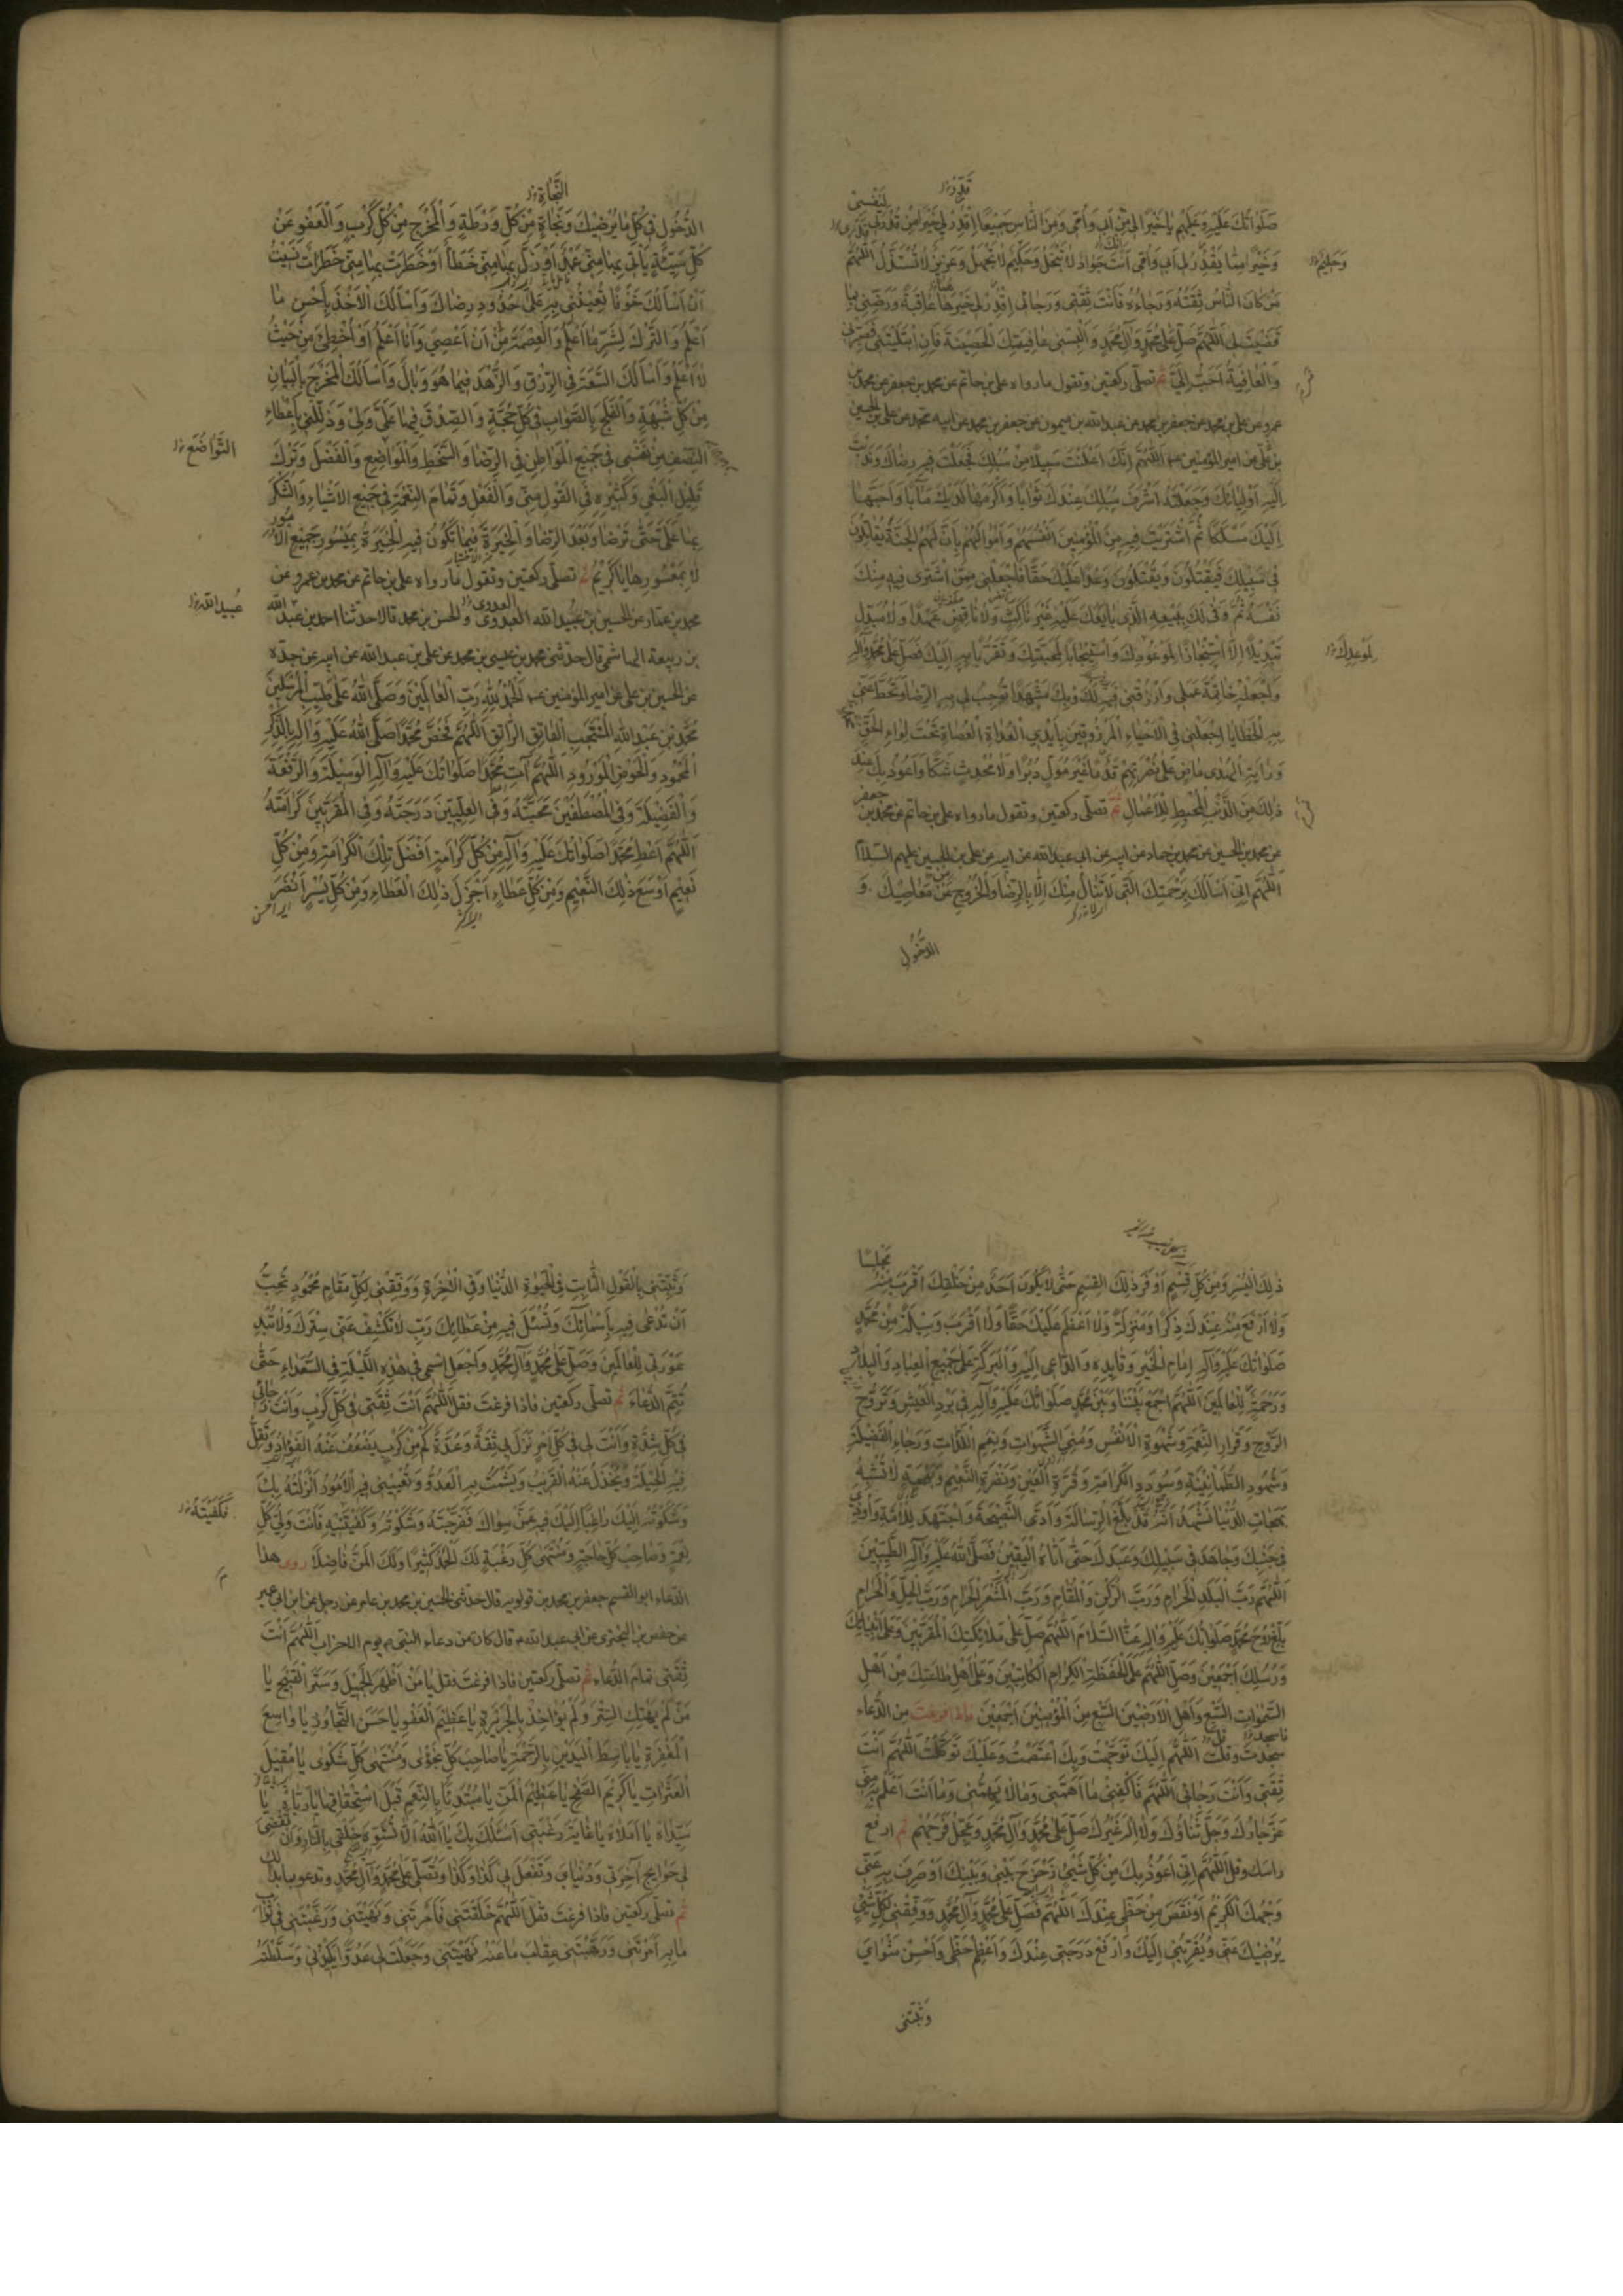 صَلَوَاتُكَ عَلَيْهِ وَعَلَيْهِمْ يا خَيْرًا لي مِنْ اَبي وَاُمّي وَمِنَ النّاسِ جَميعًا اِقْدِرْ لي خَيْرًا مِنْ قَدْري لِنَفْسي
وَخَيْرًا مِمّا يَقْدِرُ لي اَبي وَاُمّي اَنْتَ جَوادٌ لا تَبْخَلُ وَحَليمٌ لا تَجْهَلُ وَعَزيزٌ لا تُسْتَذَلُّ اَللّهُمَّ
مَنْ كانَ النّاسُ ثِقَتَهُ وَرَجاءَهُ فَاَنْتَ ثِقَتي وَرَجائي اِقْدِرْ لي خَيْرَها عاقِبَةً وَرَضِّني بِما
قَضَيْتَ لي اَللّهُمَّ صَلِّ عَلى مُحَمَّدٍ وَآلِ مُحَمَّدٍ وَاَلْبِسْني عافِيَتَكَ الْحَصينَةَ فَاِنِ ابْتَلَيْتَني فَصَبِّرْني
وَالْعافِيَةُ اَحَبُّ اِلَيَّ ثم تصلّى ركعتين وتقول ما رواه على بن حاتم عن محمد بن جعفر عن محمد بن
عمرو عن على بن محمد عن جعفر بن محمد عن عبدالله بن ميمون عن جعفر بن محمد عن ابيه محمد عن على بن الحسين
بن على عن امير المؤمنين اَللّهُمَّ اِنَّكَ اَعْلَنْتَ سَبيلاً مِنْ سُبُلِكَ فَجَعَلْتَ فيهِ رِضاكَ وَنَدَبْتَ
اِلَيْهِ اَوْلِياءَكَ وَجَعَلْتَهُ اَشْرَفَ سُبُلِكَ عِنْدَكَ ثَوابًا وَاَكْرَمَها لَدَيْكَ مَآبًا وَاَحَبَّها
اِلَيْكَ مَسْلَكًا ثُمَّ اشْتَرَيْتَ فيهِ مِنَ الْمُؤْمِنينَ اَنْفُسَهُمْ وَاَمْوالَهُمْ بِاَنَّ لَهُمُ الْجَنَّةَ يُقاتِلُونَ
في سَبيلِكَ فَيَقْتُلُونَ وَيُقْتَلُونَ وَعْدًا عَلَيْكَ حَقًّا فَاجْعَلْني مِمَّنِ اشْتَرى فيهِ مِنْكَ
نَفْسَهُ ثُمَّ وَفى لَكَ بِبَيْعِهِ الَّذي بايَعَكَ عَلَيْهِ غَيْرَ ناكِثٍ وَلا ناقِضٍ عَهْدًا وَلا مُبَدِّلٍ
تَبْديلاً اِلاَّ اسْتِنْجازًا لِمَوْعُودِكَ وَاسْتيجابًا لِمَحَبَّتِكَ وَتَقَرُّبًا بِهِ اِلَيْكَ فَصَلِّ عَلى مُحَمَّدٍ وَآلِهِ
وَاجْعَلْهُ خاتِمَةَ عَمَلي وَارْزُقْني فيهِ لَكَ وَبِكَ مَشْهَدًا تُوجِبُ لي بِهِ الرِّضا وَتَحُطُّ عَنّي
بِهِ الْخَطايا اِجْعَلْني فِي الْاَحْياءِ الْمَرْزُوقينَ بِاَيْدِي الْعُداةِ الْعُصاةِ تَحْتَ لِواءِ الْحَقِّ
وَرايَةِ الْهُدى ماضٍ عَلى نُصْرَتِهِمْ قُدُمًا غَيْرَ مُوَلٍّ دُبُرًا وَلا مُحْدِثٍ شَكًّا وَاَعُوذُ بِكَ عِنْدَ
ذلِكَ مِنَ الذَّنْبِ الْمُحْبِطِ لِلْاَعْمالِ ثم تصلّى ركعتين وتقول ما رواه على بن حاتم عن محمد بن جعفر
عن محمد بن الحسين عن محمد بن حماد عن ابيه عن ابى عبدالله عن ابيه عن على بن الحسين عليهم السلام
اَللّهُمَّ اِنّي اَسْاَلُكَ بِرَحْمَتِكَ الَّتي لا تُنالُ مِنْكَ اِلاّ بِالرِّضا وَالْخُرُوجَ عَنْ مَعاصيكَ وَ
الدُّخُولَ
وَحَليمٌ
لِمَوْعِدِكَ
النَّجاةِ
الدُّخُولَ في كُلِّ ما يُرْضيكَ وَنَجاةً مِنْ كُلِّ وَرْطَةٍ وَالْمَخْرَجَ مِنْ كُلِّ كَرْبٍ وَالْعَفْوَ عَنْ
كُلِّ سَيِّئَةٍ يَأْتي بِها مِنّي عَمْدٌ اَوْ زَلَّ بِها مِنّي خَطَأٌ اَوْ خَطَرَتْ بِها مِنّي خَطَراتُ نَسيتُ
اَنْ اَسْاَلَكَ خَوْفًا تُعينُني بِهِ عَلى حُدُودِ رِضاكَ وَاَسْاَلُكَ الْاَخْذَ بِاَحْسَنِ ما
اَعْلَمُ وَالتَّرْكَ لِشَرِّ ما اَعْلَمُ وَالْعِصْمَةَ مِنْ اَنْ اَعْصِيَ وَاَنَا اَعْلَمُ اَوْ اُخْطِئَ مِنْ حَيْثُ
لا اَعْلَمُ وَاَسْاَلُكَ السَّعَةَ فِي الرِّزْقِ وَالزُّهْدَ فيما هُوَ وَبالٌ وَاَسْاَلُكَ الْمَخْرَجَ بِالْبَيانِ
مِنْ كُلِّ شُبْهَةٍ وَالْفَلَجَ بِالصَّوابِ في كُلِّ حُجَّةٍ وَالصِّدْقَ فيما عَلَيَّ وَلي وَذَلِّلْني بِاِعْطاءِ
النَّصَفِ مِنْ نَفْسي في جَميعِ الْمَواطِنِ فِي الرِّضا وَالسَّخَطِ وَالْمَواضِعِ وَالْفَضْلَ وَتَرْكَ
قَليلِ الْبَغْيِ وَكَثيرِهِ فِي الْقَوْلِ مِنّي وَالْفِعْلِ وَتَمامَ النِّعْمَةِ في جَميعِ الْاَشْياءِ وَالشُّكْرَ
بِها عَلَيَّ حَتّى تَرْضا وَبَعْدَ الرِّضا وَالْخِيَرَةَ فيما تَكُونُ فيهِ الْخِيَرَةُ بِمَيْسُورِ جَميعِ الْاُمُورِ
لا بِمَعْسُورِها يا كَريمُ ثم تصلّى ركعتين وتقول ما رواه على بن حاتم عن محمد بن عمرو عن
محمد بن عمار عن الحسين بن عبيدالله العبدوى والحسن بن محمد قالا حدثنا احمد بن عبدالله
بن ربيعة الهاشمى قال حدثنى محمد بن عيسى بن محمد عن على بن عبدالله عن ابيه عن جده
عن الحسين بن على عن امير المؤمنين اَلْحَمْدُ لِلّهِ رَبِّ الْعالَمينَ وَصَلَّى اللهُ عَلى طَيِّبِ الْمُرْسَلينَ
مُحَمَّدِ بْنِ عَبْدِاللهِ الْمُنْتَجَبِ الْفاتِقِ الرّاتِقِ اَللّهُمَّ فَخُصَّ مُحَمَّدًا صَلَّى اللهُ عَلَيْهِ وَآلِهِ بِالذِّكْرِ
الْمَحْمُودِ وَالْحَوْضِ الْمَوْرُودِ اَللّهُمَّ آتِ مُحَمَّدًا صَلَواتُكَ عَلَيْهِ وَآلِهِ الْوَسيلَةَ وَالرِّفْعَةَ
وَالْفَضيلَةَ وَفِي الْمُصْطَفَيْنَ مَحَبَّتَهُ وَفِي الْعِلِّيّينَ دَرَجَتَهُ وَفِي الْمُقَرَّبينَ كَرامَتَهُ
اَللّهُمَّ اَعْطِ مُحَمَّدًا صَلَواتُكَ عَلَيْهِ وَآلِهِ مِنْ كُلِّ كَرامَةٍ اَفْضَلَ تِلْكَ الْكَرامَةِ وَمِنْ كُلِّ
نَعيمٍ اَوْسَعَ ذلِكَ النَّعيمِ وَمِنْ كُلِّ عَطاءٍ اَجْزَلَ ذلِكَ الْعَطاءِ وَمِنْ كُلِّ يُسْرٍ اَنْضَرَ
التَّواضُعَ
عُبيدالله
مَجْلِسًا
ذلِكَ الْيُسْرِ وَمِنْ كُلِّ قِسْمٍ اَوْفَرَ ذلِكَ الْقِسْمِ حَتّى لا يَكُونَ اَحَدٌ مِنْ خَلْقِكَ اَقْرَبَ مِنْهُ
وَلا اَرْفَعَ مِنْهُ عِنْدَكَ ذِكْرًا وَمَنْزِلَةً وَلا اَعْظَمَ عَلَيْكَ حَقًّا وَلا اَقْرَبَ وَسيلَةً مِنْ مُحَمَّدٍ
صَلَواتُكَ عَلَيْهِ وَآلِهِ اِمامِ الْخَيْرِ وَقايِدِهِ وَالدّاعي اِلَيْهِ وَالْبَرَكَةِ عَلى جَميعِ الْعِبادِ وَالْبِلادِ
وَرَحْمَةً لِلْعالَمينَ اَللّهُمَّ اجْمَعْ بَيْنَنا وَبَيْنَ مُحَمَّدٍ صَلَواتُكَ عَلَيْهِ وَآلِهِ في بَرْدِ الْعَيْشِ وَتَرَوُّحِ
الرَّوْحِ وَقَرارِ النِّعْمَةِ وَشَهْوَةِ الْاَنْفُسِ وَمُنَى الشَّهَواتِ وَنَعيمِ اللَّذّاتِ وَرَجاءِ الْفَضيلَةِ
وَشُهُودِ الطُّمَأْنينَةِ وَسُودَدِ الْكَرامَةِ وَقُرَّةِ الْعَيْنِ وَنَضْرَةِ النَّعيمِ وَبَهْجَةٍ لا تُشْبِهُ
بَهَجاتِ الدُّنْيا نَشْهَدُ اَنَّهُ قَدْ بَلَّغَ الرِّسالَةَ وَاَدَّى النَّصيحَةَ وَاجْتَهَدَ لِلْاُمَّةِ وَاُوذِيَ
في جَنْبِكَ وَجاهَدَ في سَبيلِكَ وَعَبَدَكَ حَتّى اَتاهُ الْيَقينُ فَصَلَّى اللهُ عَلَيْهِ وَآلِهِ الطَّيِّبينَ
اَللّهُمَّ رَبَّ الْبَلَدِ الْحَرامِ وَرَبَّ الرُّكْنِ وَالْمَقامِ وَرَبَّ الْمَشْعَرِ الْحَرامِ وَرَبَّ الْحِلِّ وَالْحَرامِ
بَلِّغْ رُوحَ مُحَمَّدٍ صَلَواتُكَ عَلَيْهِ وَآلِهِ عَنَّا السَّلامَ اَللّهُمَّ صَلِّ عَلى مَلائِكَتِكَ الْمُقَرَّبينَ وَعَلى اَنْبِيائِكَ
وَرُسُلِكَ اَجْمَعينَ وَصَلِّ اللّهُمَّ عَلَى الْحَفَظَةِ الْكِرامِ الْكاتِبينَ وَعَلى اَهْلِ طاعَتِكَ مِنْ اَهْلِ
السَّمواتِ السَّبْعِ وَاَهْلِ الْاَرَضينَ السَّبْعِ مِنَ الْمُؤْمِنينَ اَجْمَعينَ فاذا فرغت من الدّعاء
سجدت وقلت اَللّهُمَّ اِلَيْكَ تَوَجَّهْتُ وَبِكَ اعْتَصَمْتُ وَعَلَيْكَ تَوَكَّلْتُ اَللّهُمَّ اَنْتَ
ثِقَتي وَاَنْتَ رَجائي اَللّهُمَّ فَاكْفِني ما اَهَمَّني وَما لا يُهِمُّني وَما اَنْتَ اَعْلَمُ بِهِ مِنّي
عَزَّ جارُكَ وَجَلَّ ثَناؤُكَ وَلا اِلهَ غَيْرُكَ صَلِّ عَلى مُحَمَّدٍ وَآلِ مُحَمَّدٍ وَعَجِّلْ فَرَجَهُمْ ثم ارفع
راسك وقل اَللّهُمَّ اِنّي اَعُوذُ بِكَ مِنْ كُلِّ شَيْءٍ زَحْزَحَ بَيْني وَبَيْنَكَ اَوْ صَرَفَ بِهِ عَنّي
وَجْهَكَ الْكَريمَ اَوْ نَقَصَ مِنْ حَظّي عِنْدَكَ اَللّهُمَّ فَصَلِّ عَلى مُحَمَّدٍ وَآلِ مُحَمَّدٍ وَوَفِّقْني لِكُلِّ شَيْءٍ
يُرْضيكَ عَنّي وَيُقَرِّبُني اِلَيْكَ وَارْفَعْ دَرَجَتي عِنْدَكَ وَاَعْظِمْ حَظّي وَاَحْسِنْ مَثْوايَ
وَثَبِّتْني
وَثَبِّتْني بِالْقَوْلِ الثّابِتِ فِي الْحَيوةِ الدُّنْيا وَفِي الْآخِرَةِ وَوَفِّقْني لِكُلِّ مَقامٍ مَحْمُودٍ تُحِبُّ
اَنْ تُدْعى فيهِ بِاَسْمائِكَ وَتُسْئَلَ فيهِ مِنْ عَطائِكَ رَبِّ لا تَكْشِفْ عَنّي سِتْرَكَ وَلا تُبْدِ
عَوْرَتي لِلْعالَمينَ وَصَلِّ عَلى مُحَمَّدٍ وَآلِ مُحَمَّدٍ وَاجْعَلِ اسْمي في هذِهِ اللَّيْلَةِ فِي السُّعَداءِ حَتّى
تُتِمَّ الدُّعاءَ ثم تصلّى ركعتين فاذا فرغت فقل اَللّهُمَّ اَنْتَ ثِقَتي في كُلِّ كَرْبٍ وَاَنْتَ رَجائي
في كُلِّ شِدَّةٍ وَاَنْتَ لي في كُلِّ اَمْرٍ نَزَلَ بي ثِقَةٌ وَعُدَّةٌ كَمْ مِنْ كَرْبٍ يَضْعُفُ عَنْهُ الْفُؤادُ وَتَقِلُّ
فيهِ الْحيلَةُ وَيَخْذُلُ عَنْهُ الْقَريبُ وَيَشْمَتُ بِهِ الْعَدُوُّ وَتُعْييني فيهِ الْاُمُورُ اَنْزَلْتُهُ بِكَ
وَشَكَوْتُهُ اِلَيْكَ راغِبًا اِلَيْكَ فيهِ عَمَّنْ سِواكَ فَفَرَّجْتَهُ وَشَكَوْتُهُ وَكَفَيْتَنيهِ فَاَنْتَ وَلِيُّ كُلِّ
نِعْمَةٍ وَصاحِبُ كُلِّ حاجَةٍ وَمُنْتَهى كُلِّ رَغْبَةٍ لَكَ الْحَمْدُ كَثيرًا وَلَكَ الْمَنُّ فاضِلاً روى هذا
الدعاء ابو القسم جعفر بن محمد بن قولويه قال حدثنى الحسين بن محمد بن عامر عن رجل عن ابن ابى عمير
عن حفص بن البخترى عن ابى عبدالله قال كان من دعاء النبى يوم الاحزاب اَللّهُمَّ اَنْتَ
ثِقَتي تمام الدّعاء ثم تصلّى ركعتين فاذا فرغت فقل يا مَنْ اَظْهَرَ الْجَميلَ وَسَتَرَ الْقَبيحَ يا
مَنْ لَمْ يَهْتِكِ السِّتْرَ وَلَمْ يُؤاخِذْ بِالْجَريرَةِ يا عَظيمَ الْعَفْوِ يا حَسَنَ التَّجاوُزِ يا واسِعَ
الْمَغْفِرَةِ يا باسِطَ الْيَدَيْنِ بِالرَّحْمَةِ يا صاحِبَ كُلِّ نَجْوى وَمُنْتَهى كُلِّ شَكْوى يا مُقيلَ
الْعَثَراتِ يا كَريمَ الصَّفْحِ يا عَظيمَ الْمَنِّ يا مُبْتَدِئًا بِالنِّعَمِ قَبْلَ اسْتِحْقاقِها يا رَبّاهُ يا
سَيِّداهُ يا اَمَلاهُ يا غايَةَ رَغْبَتي اَسْئَلُكَ بِكَ يا اَللهُ اَلاّ تُشَوِّهَ خَلْقي بِالنّارِ وَاَنْ تَقْضِيَ
لي حَوائِجَ آخِرَتي وَدُنْيايَ وَتَفْعَلَ بي كَذا وَكَذا وَتُصَلِّيَ عَلى مُحَمَّدٍ وَآلِ مُحَمَّدٍ وتدعو بما بدا لك
ثم تصلّى ركعتين فاذا فرغت فقل اَللّهُمَّ خَلَقْتَني فَاَمَرْتَني وَنَهَيْتَني وَرَغَّبْتَني في ثَوابِ
ما بِهِ اَمَرْتَني وَرَهَّبْتَني عِقابَ ما عَنْهُ نَهَيْتَني وَجَعَلْتَ لي عَدُوًّا يَكيدُني وَسَلَّطْتَهُ
فَكَفَيْتَهُ